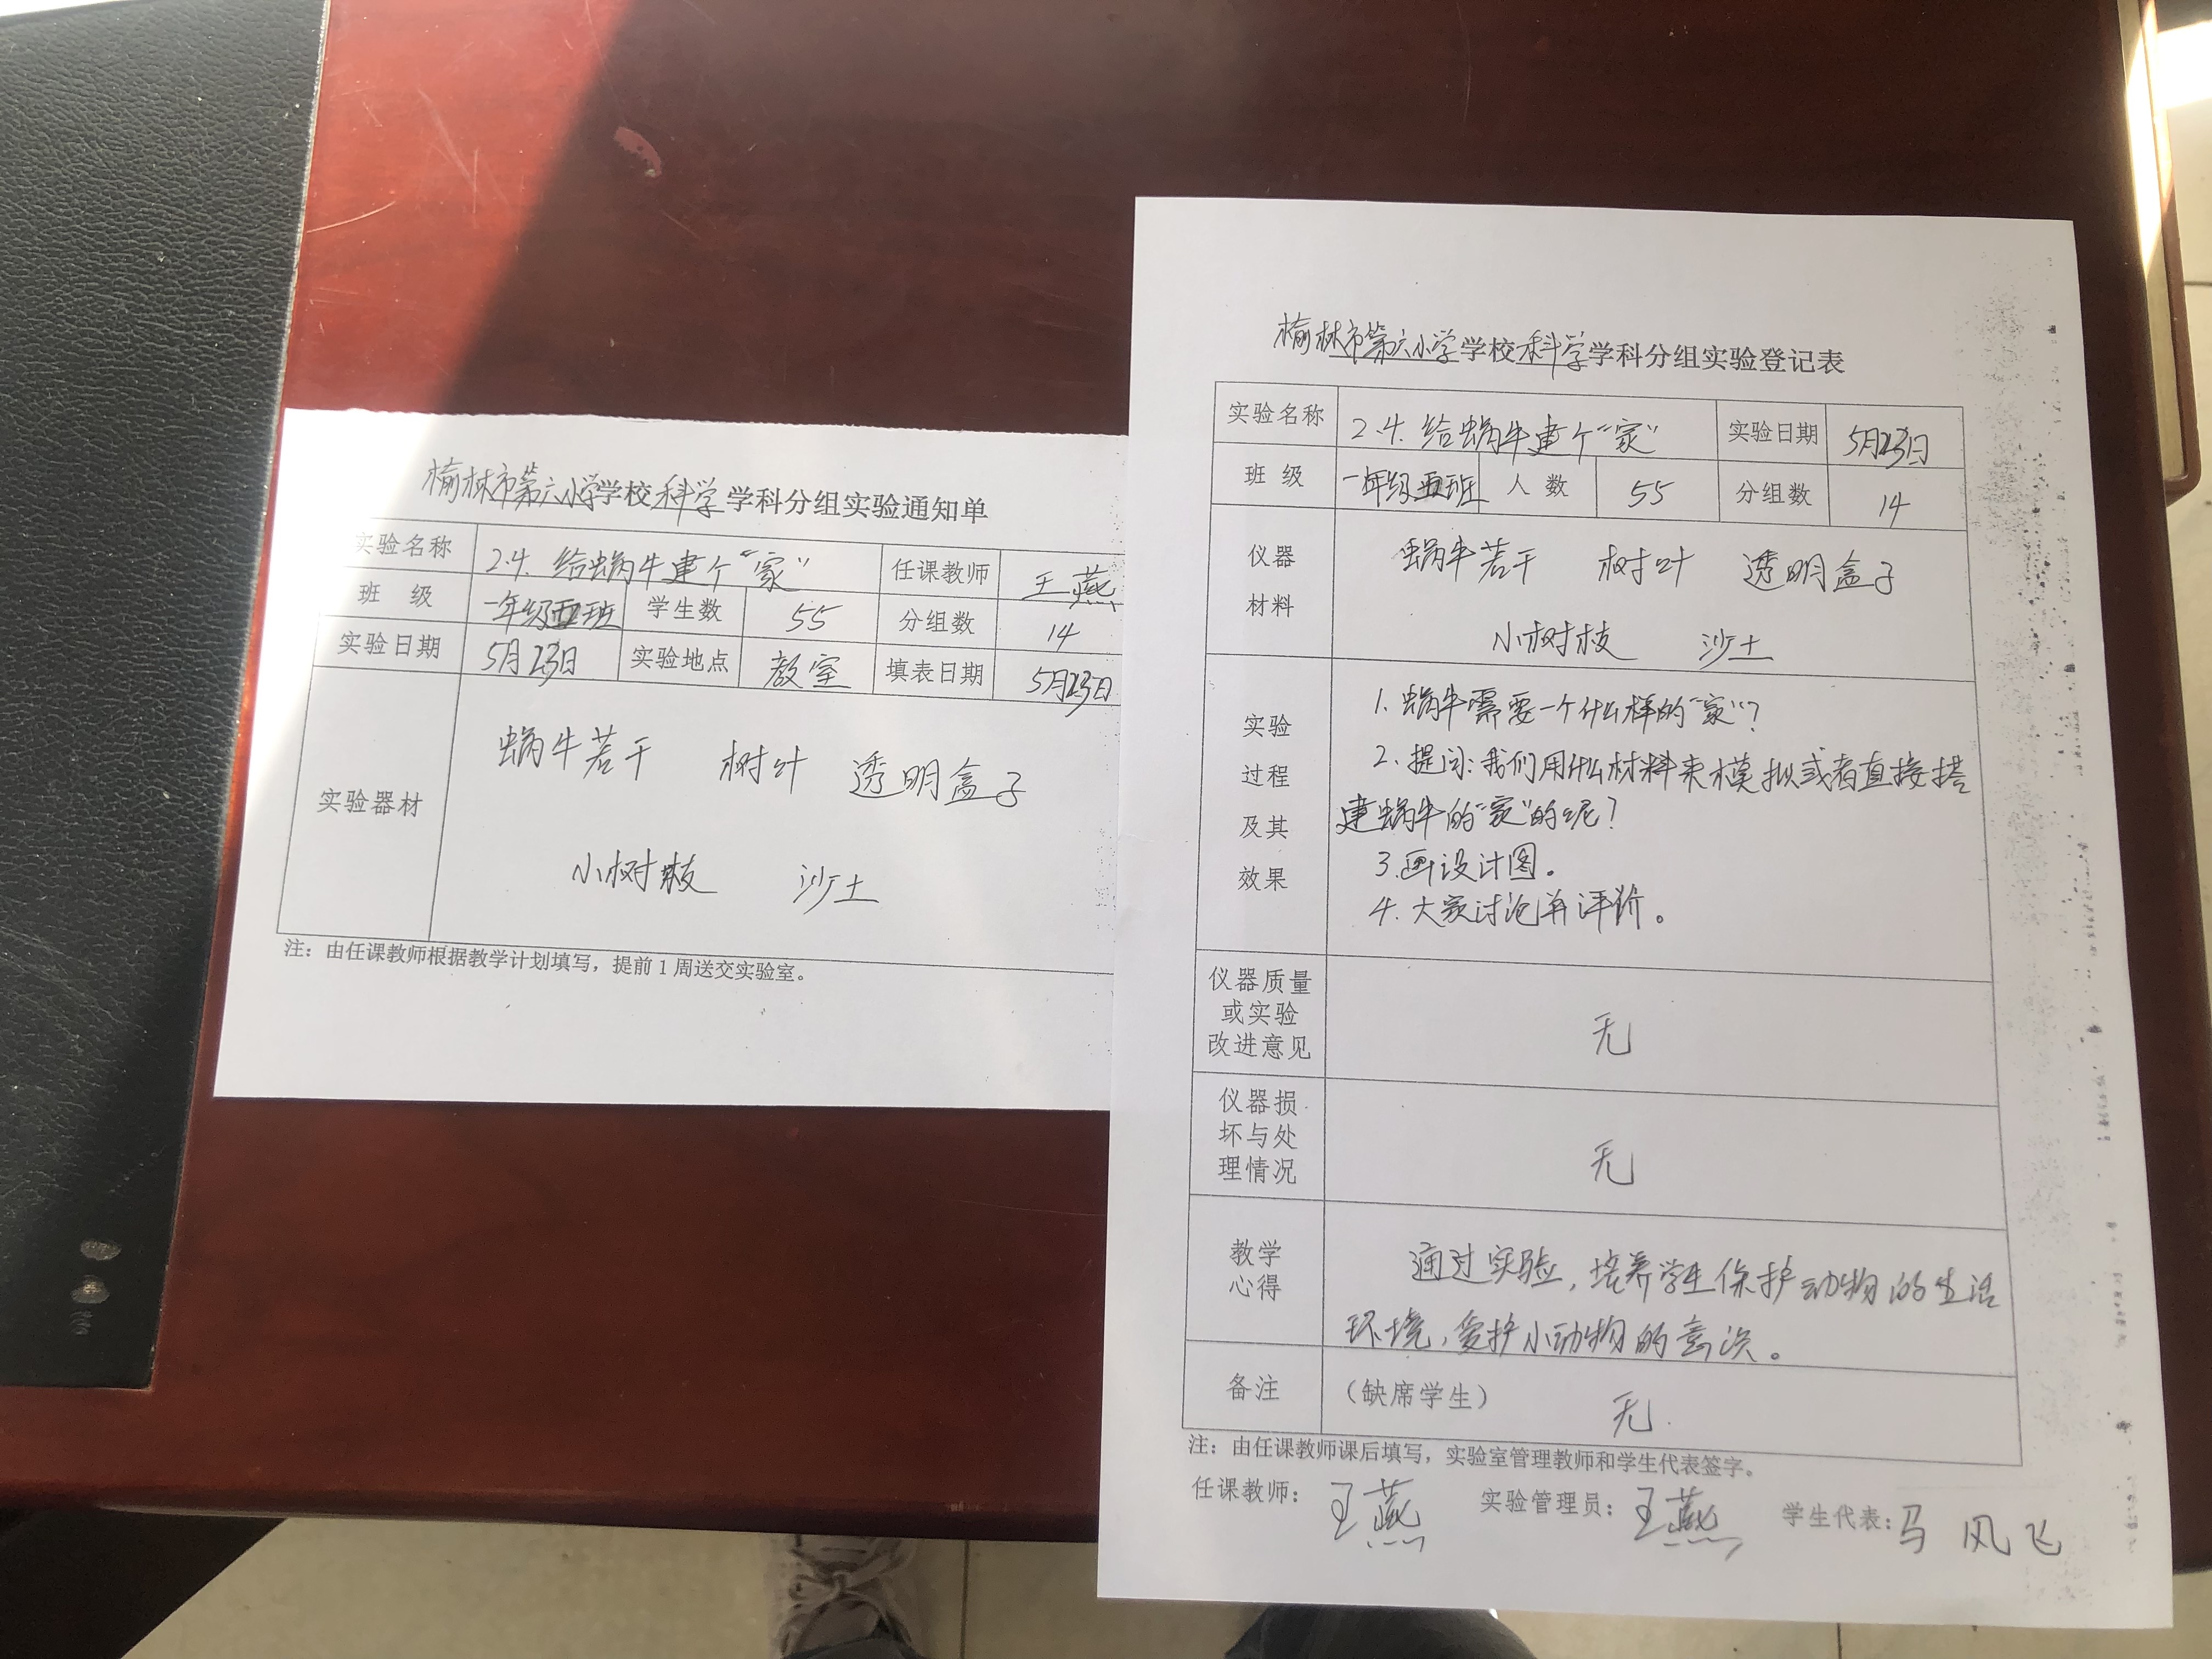 榆林市第六小学学校科学学科分组实验通知单
实验名称 2.4.给蜗牛建个“家” 任课教师 王燕
班 级 一年级五班 学生数 55 分组数 14
实验日期 5月23日 实验地点 教室 填表日期 5月23日
实验器材
蜗牛若干 树叶 透明盒子
小树枝 沙土
注：由任课教师根据教学计划填写，提前1周送交实验室。
榆林市第六小学学校科学学科分组实验登记表
实验名称 2.4.给蜗牛建个“家” 实验日期 5月23日
班 级 一年级五班 人 数 55 分组数 14
仪器
材料
蜗牛若干 树叶 透明盒子
小树枝 沙土
实验
过程
及其
效果
1.蜗牛需要一个什么样的“家”？
2.提问：我们用什么材料来模拟或者直接搭
建蜗牛的“家”的呢？
3.画设计图。
4.大家讨论并评价。
仪器质量
或实验
改进意见
无
仪器损
坏与处
理情况
无
教学
心得
通过实验，培养学生保护动物的生活
环境，爱护小动物的意识。
备注 （缺席学生） 无
注：由任课教师课后填写，实验室管理教师和学生代表签字。
任课教师：王燕 实验管理员：王燕 学生代表：马风飞